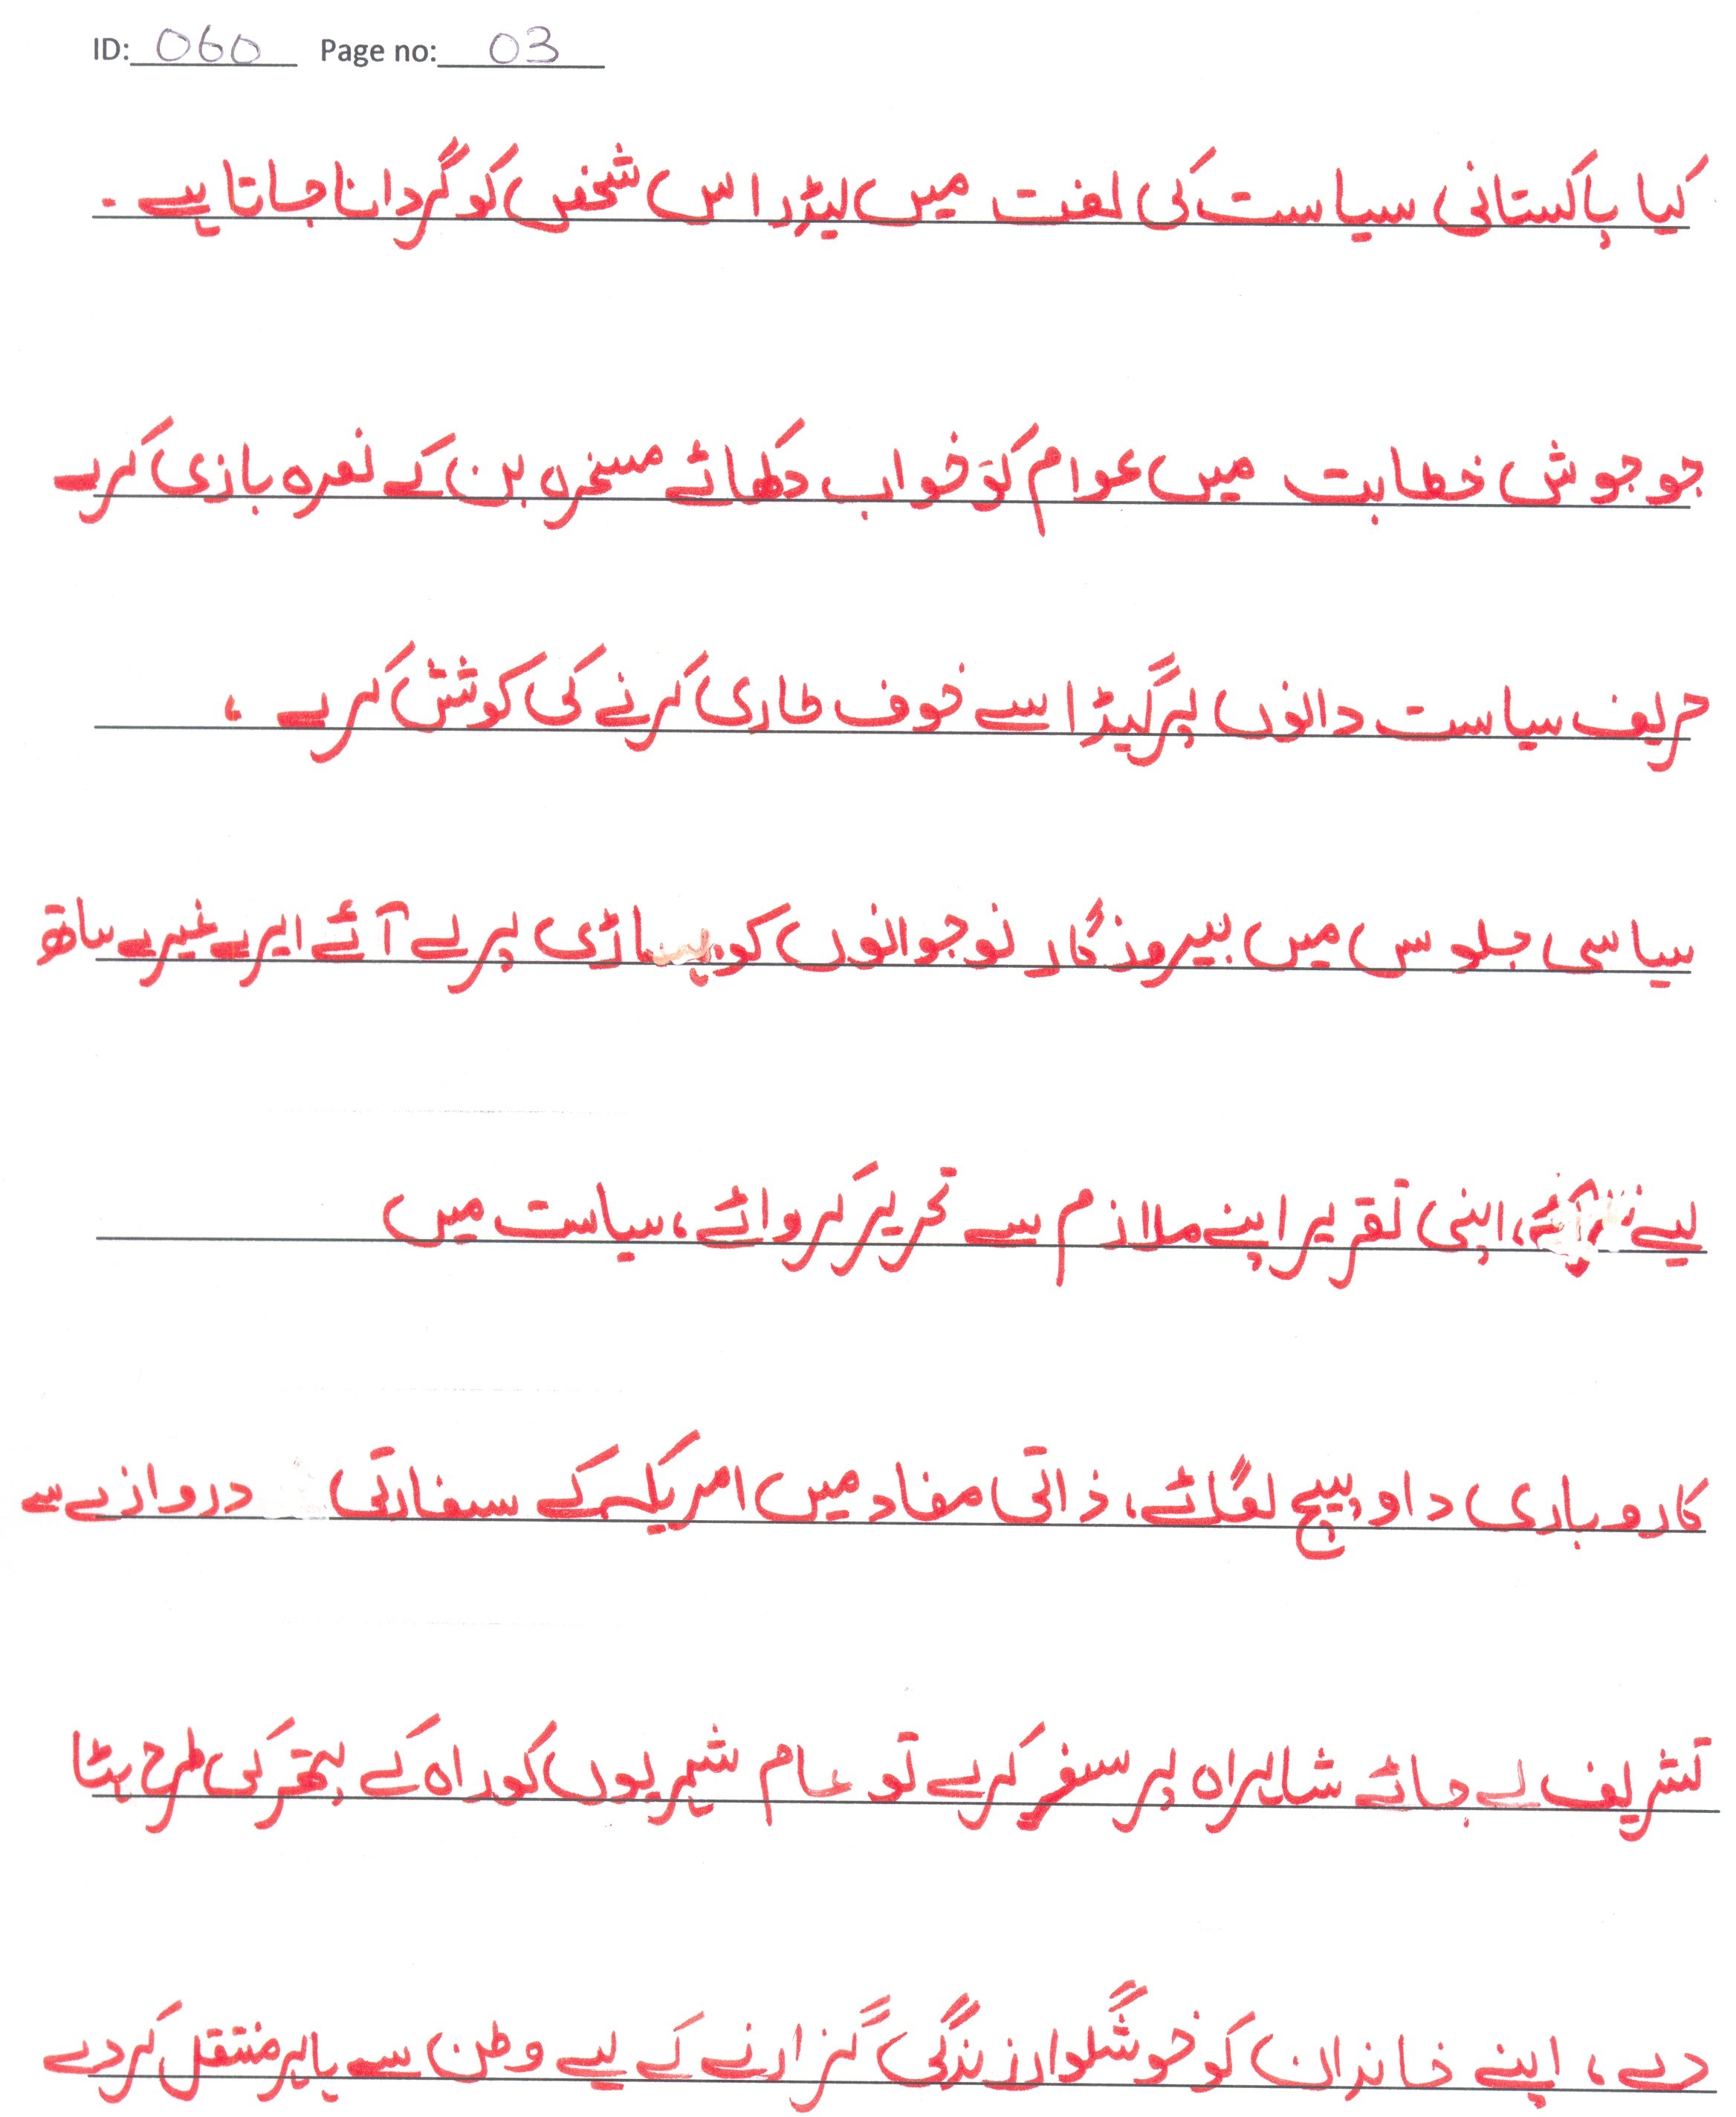 ID: 060 Page no: 03
کیا پاکستانی سیاست کی لغت میں لیڈر اس شخص کو گردانا جاتا ہے۔
جو جوش خطابت میں عوام کو خواب دکھائے مسخرہ بن کے نعرہ بازی کرے
حریف سیاست دانوں پر گیڈا سے خوف طاری کرنے کی کوشش کرے ،
سیاسی جلوس میں بیروزگار نوجوانوں کو پر لے آئے ایرے غیرے ساتھ
لیے ، اپنی تقریر اپنے ملازم سے تحریر کروائے ، سیاست میں
کاروباری داو پیچ لگائے ، ذاتی مفاد میں امریکہ کے سفارتی دروازے سے
تشریف لے جائے شاہراہ پر سفر کرے تو عام شہریوں کو راہ کے پتھر کی طرح ہٹا
دے ، اپنے خاندان کو خوشگوار زندگی گزارنے کے لیے وطن سے باہر منتقل کر دے